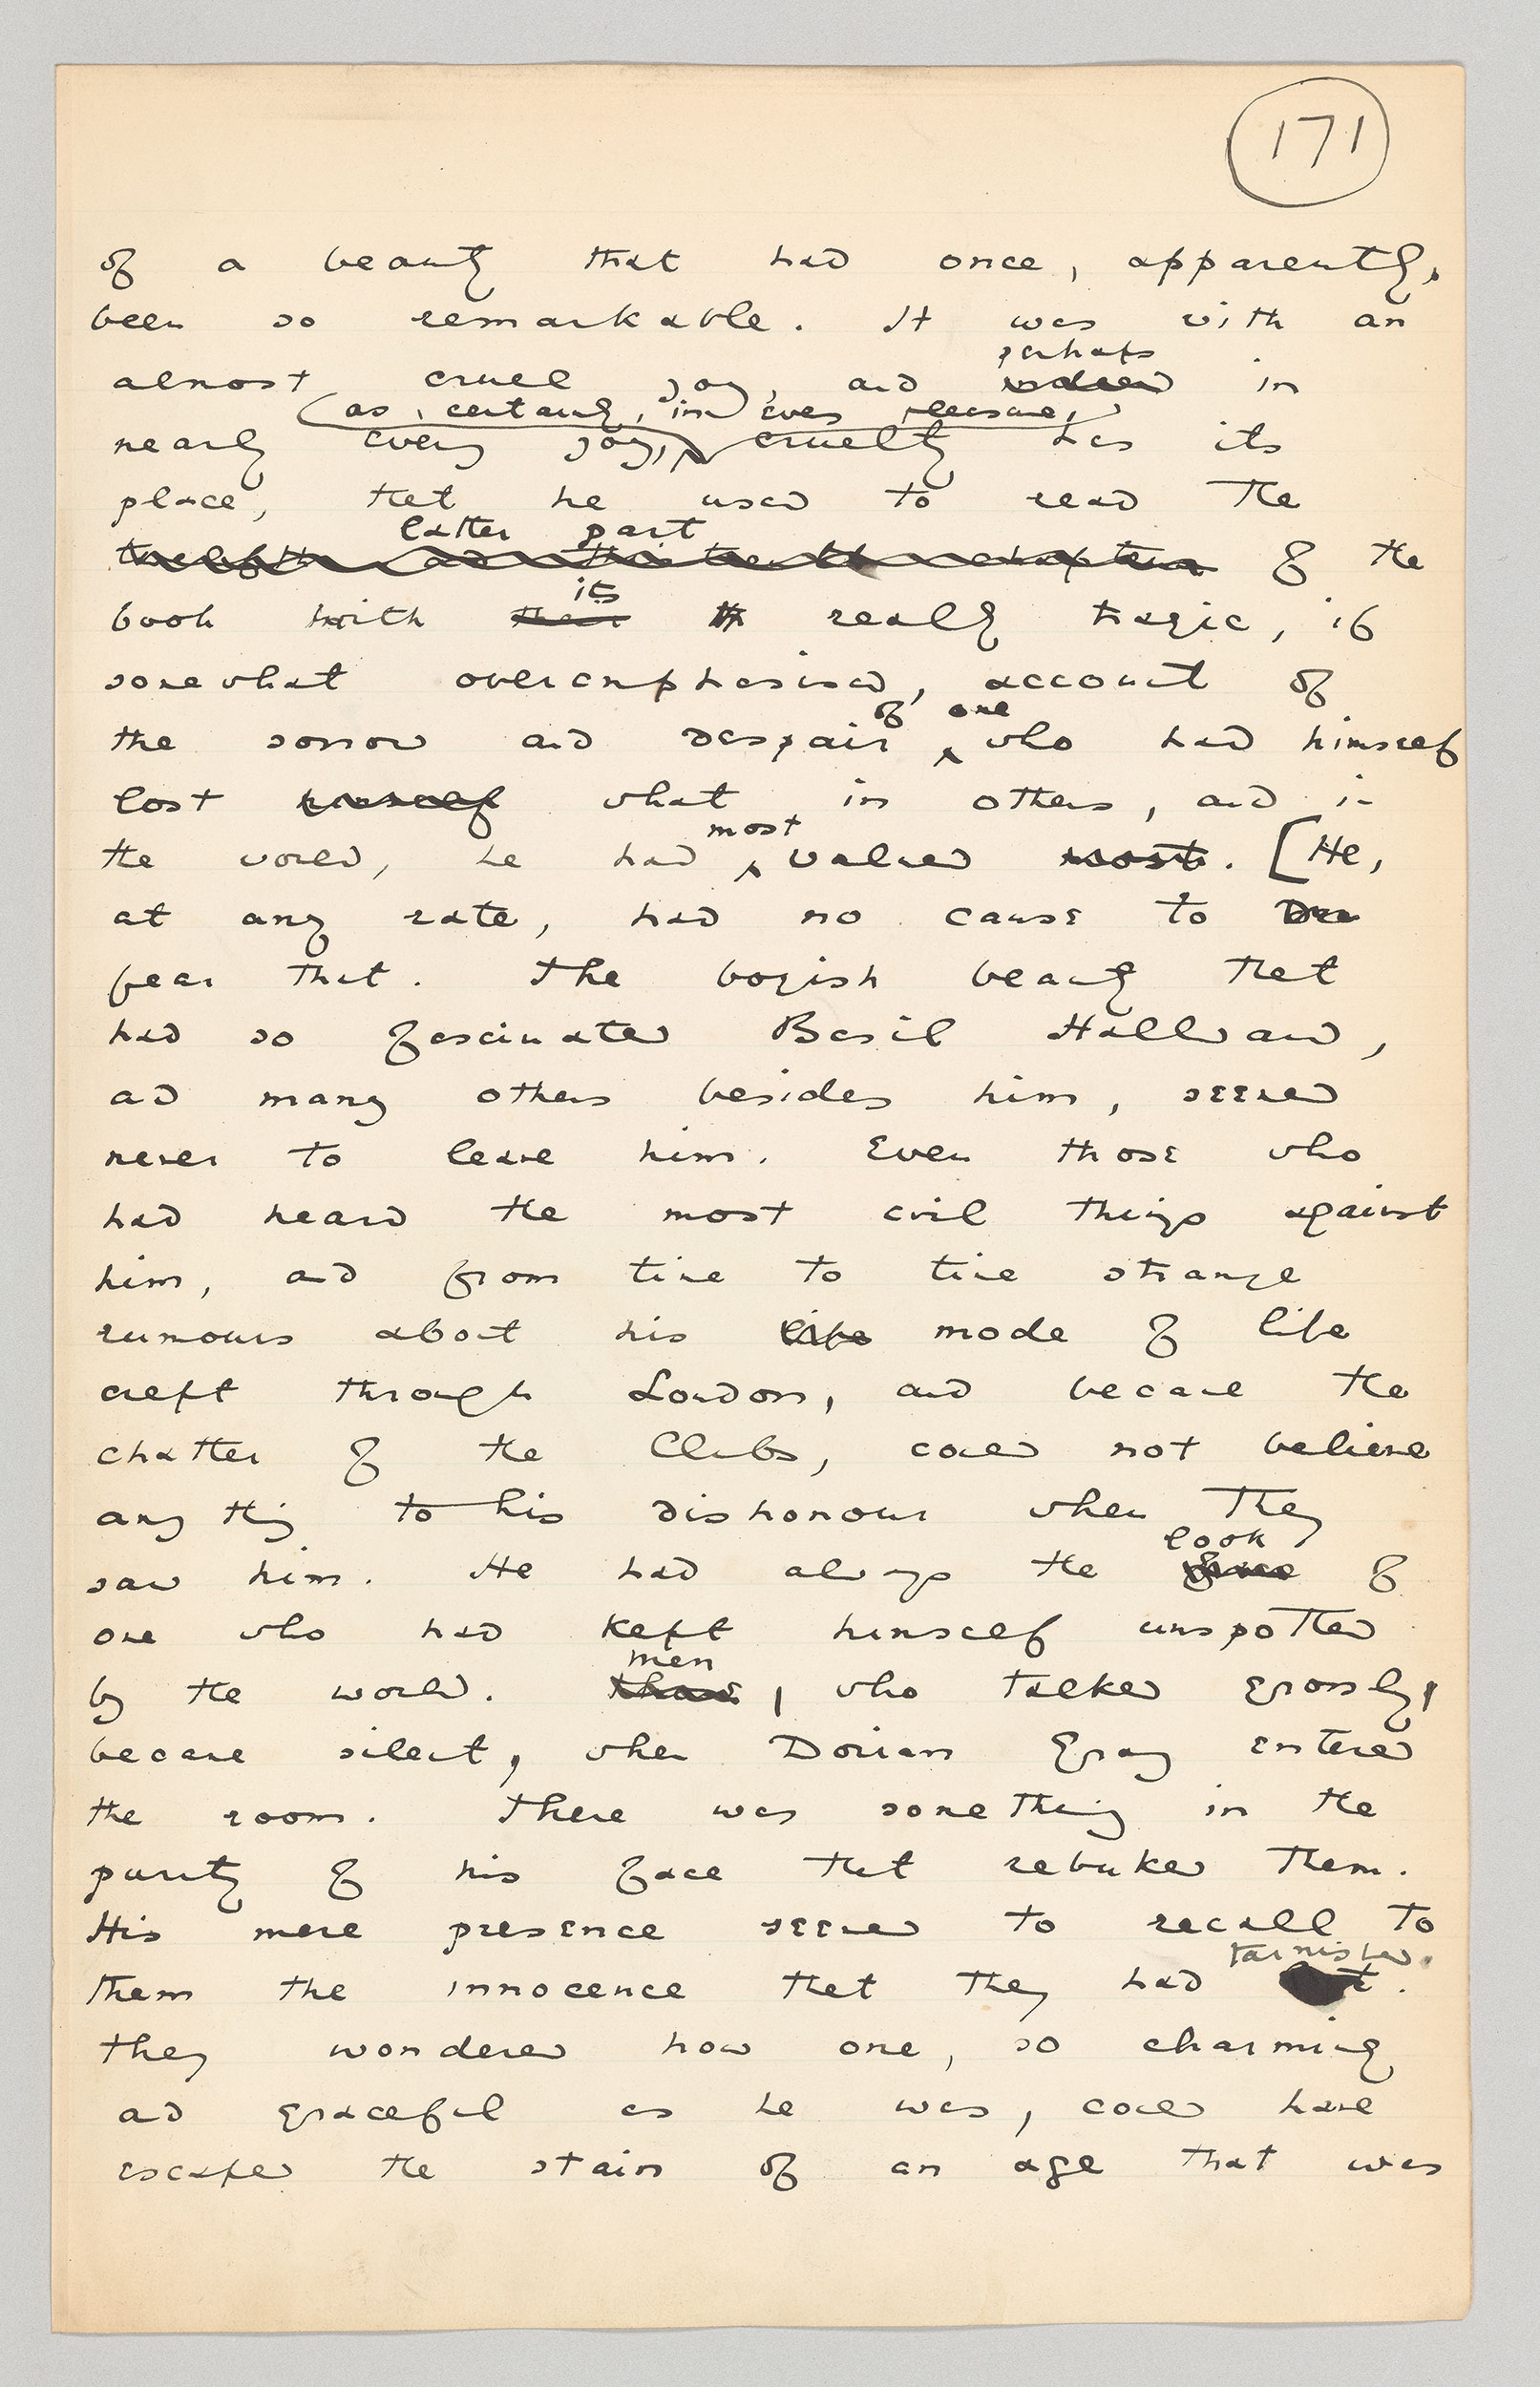 171
of a beauty that had once, apparently,
been so remarkable. It was with an
perhaps
almost cruel joy, and indeed in
(as, certainly, in every pleasure,)
nearly every joy, cruelty has its
place, that he used to read the
latter part
twelfth and thirteenth chapters of the
its
book with their really tragic, if
somewhat overemphasised, account of
of one
the sorrow and despair who had himself
lost himself what in others, and in
most
the world, he had valued most. [He,
at any rate, had no cause to
fear that. The boyish beauty that
had so fascinated Basil Hallward,
and many others besides him, seemed
never to leave him. Even those who
had heard the most evil things against
him, and from time to time strange
rumours about his life mode of life
crept through London, and became the
chatter of the Clubs, could not believe
anything to his dishonour when they
look
saw him. He had always the of
one who had kept himself unspotted
men
by the world. those, who talked grossly,
became silent, when Dorian Gray entered
the room. There was something in the
purity of his face that rebuked them.
His mere presence seemed to recall to
tarnished.
them the innocence that they had .
they wondered how one, so charming
and graceful as he was, could have
escaped the stain of an age that was